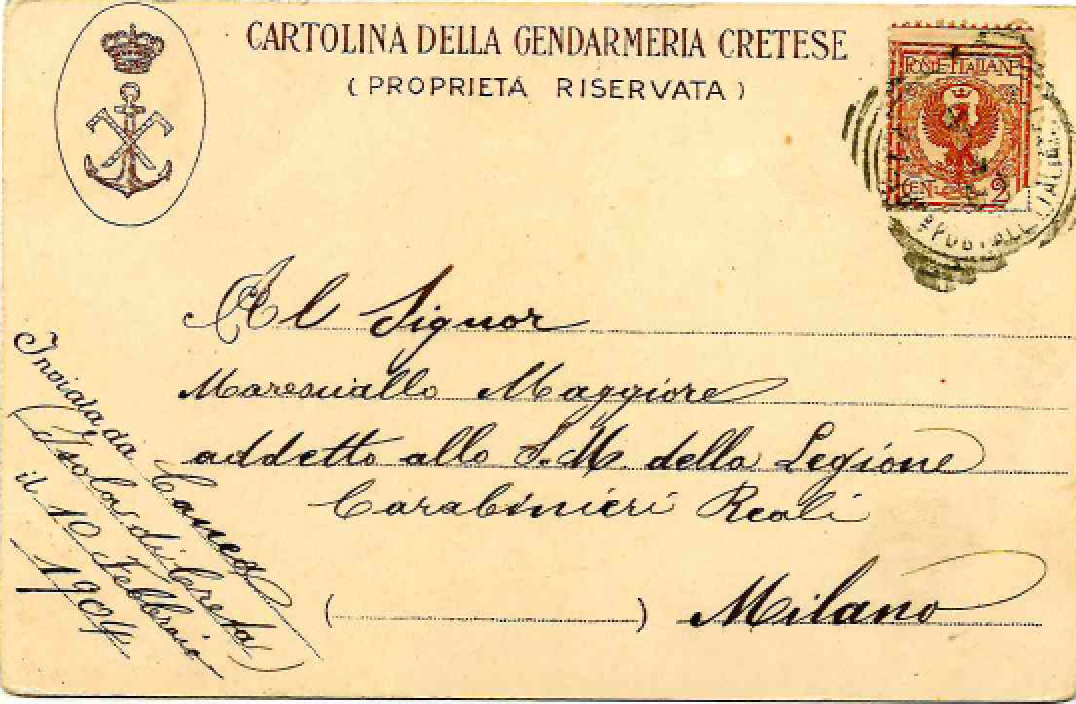 CARTOLINA DELLA GENDARMERIA CRETESE
( PROPRIETÁ RISERVATA )
POSTE ITALIANE
CEN. 2
Al Signor
Maresciallo Maggiore
addetto allo S.M. della Legione
Carabinieri Reali
( ) Milano
Inviata da Canea
(Isola di Creta)
il 10 Febbraio
1904